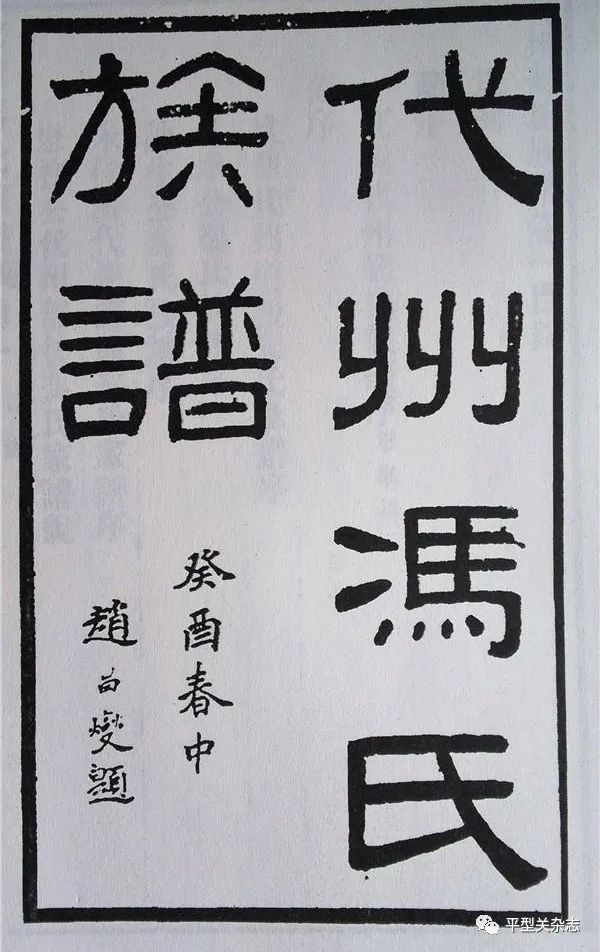 代州馮氏
族譜
癸酉春中
趙曰燮題
平型关杂志